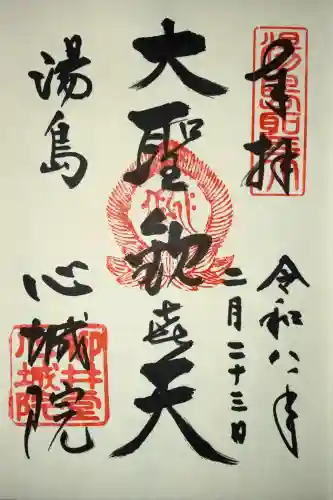 奉拝
湯島聖天
令和八年
二月二十三日
大聖歓喜天
湯島
心城院
柳井堂
心城院